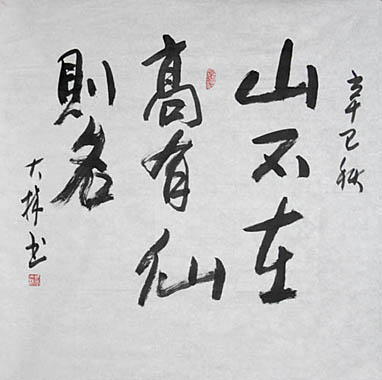 辛巳秋
山不在
高有仙
則名
大林书